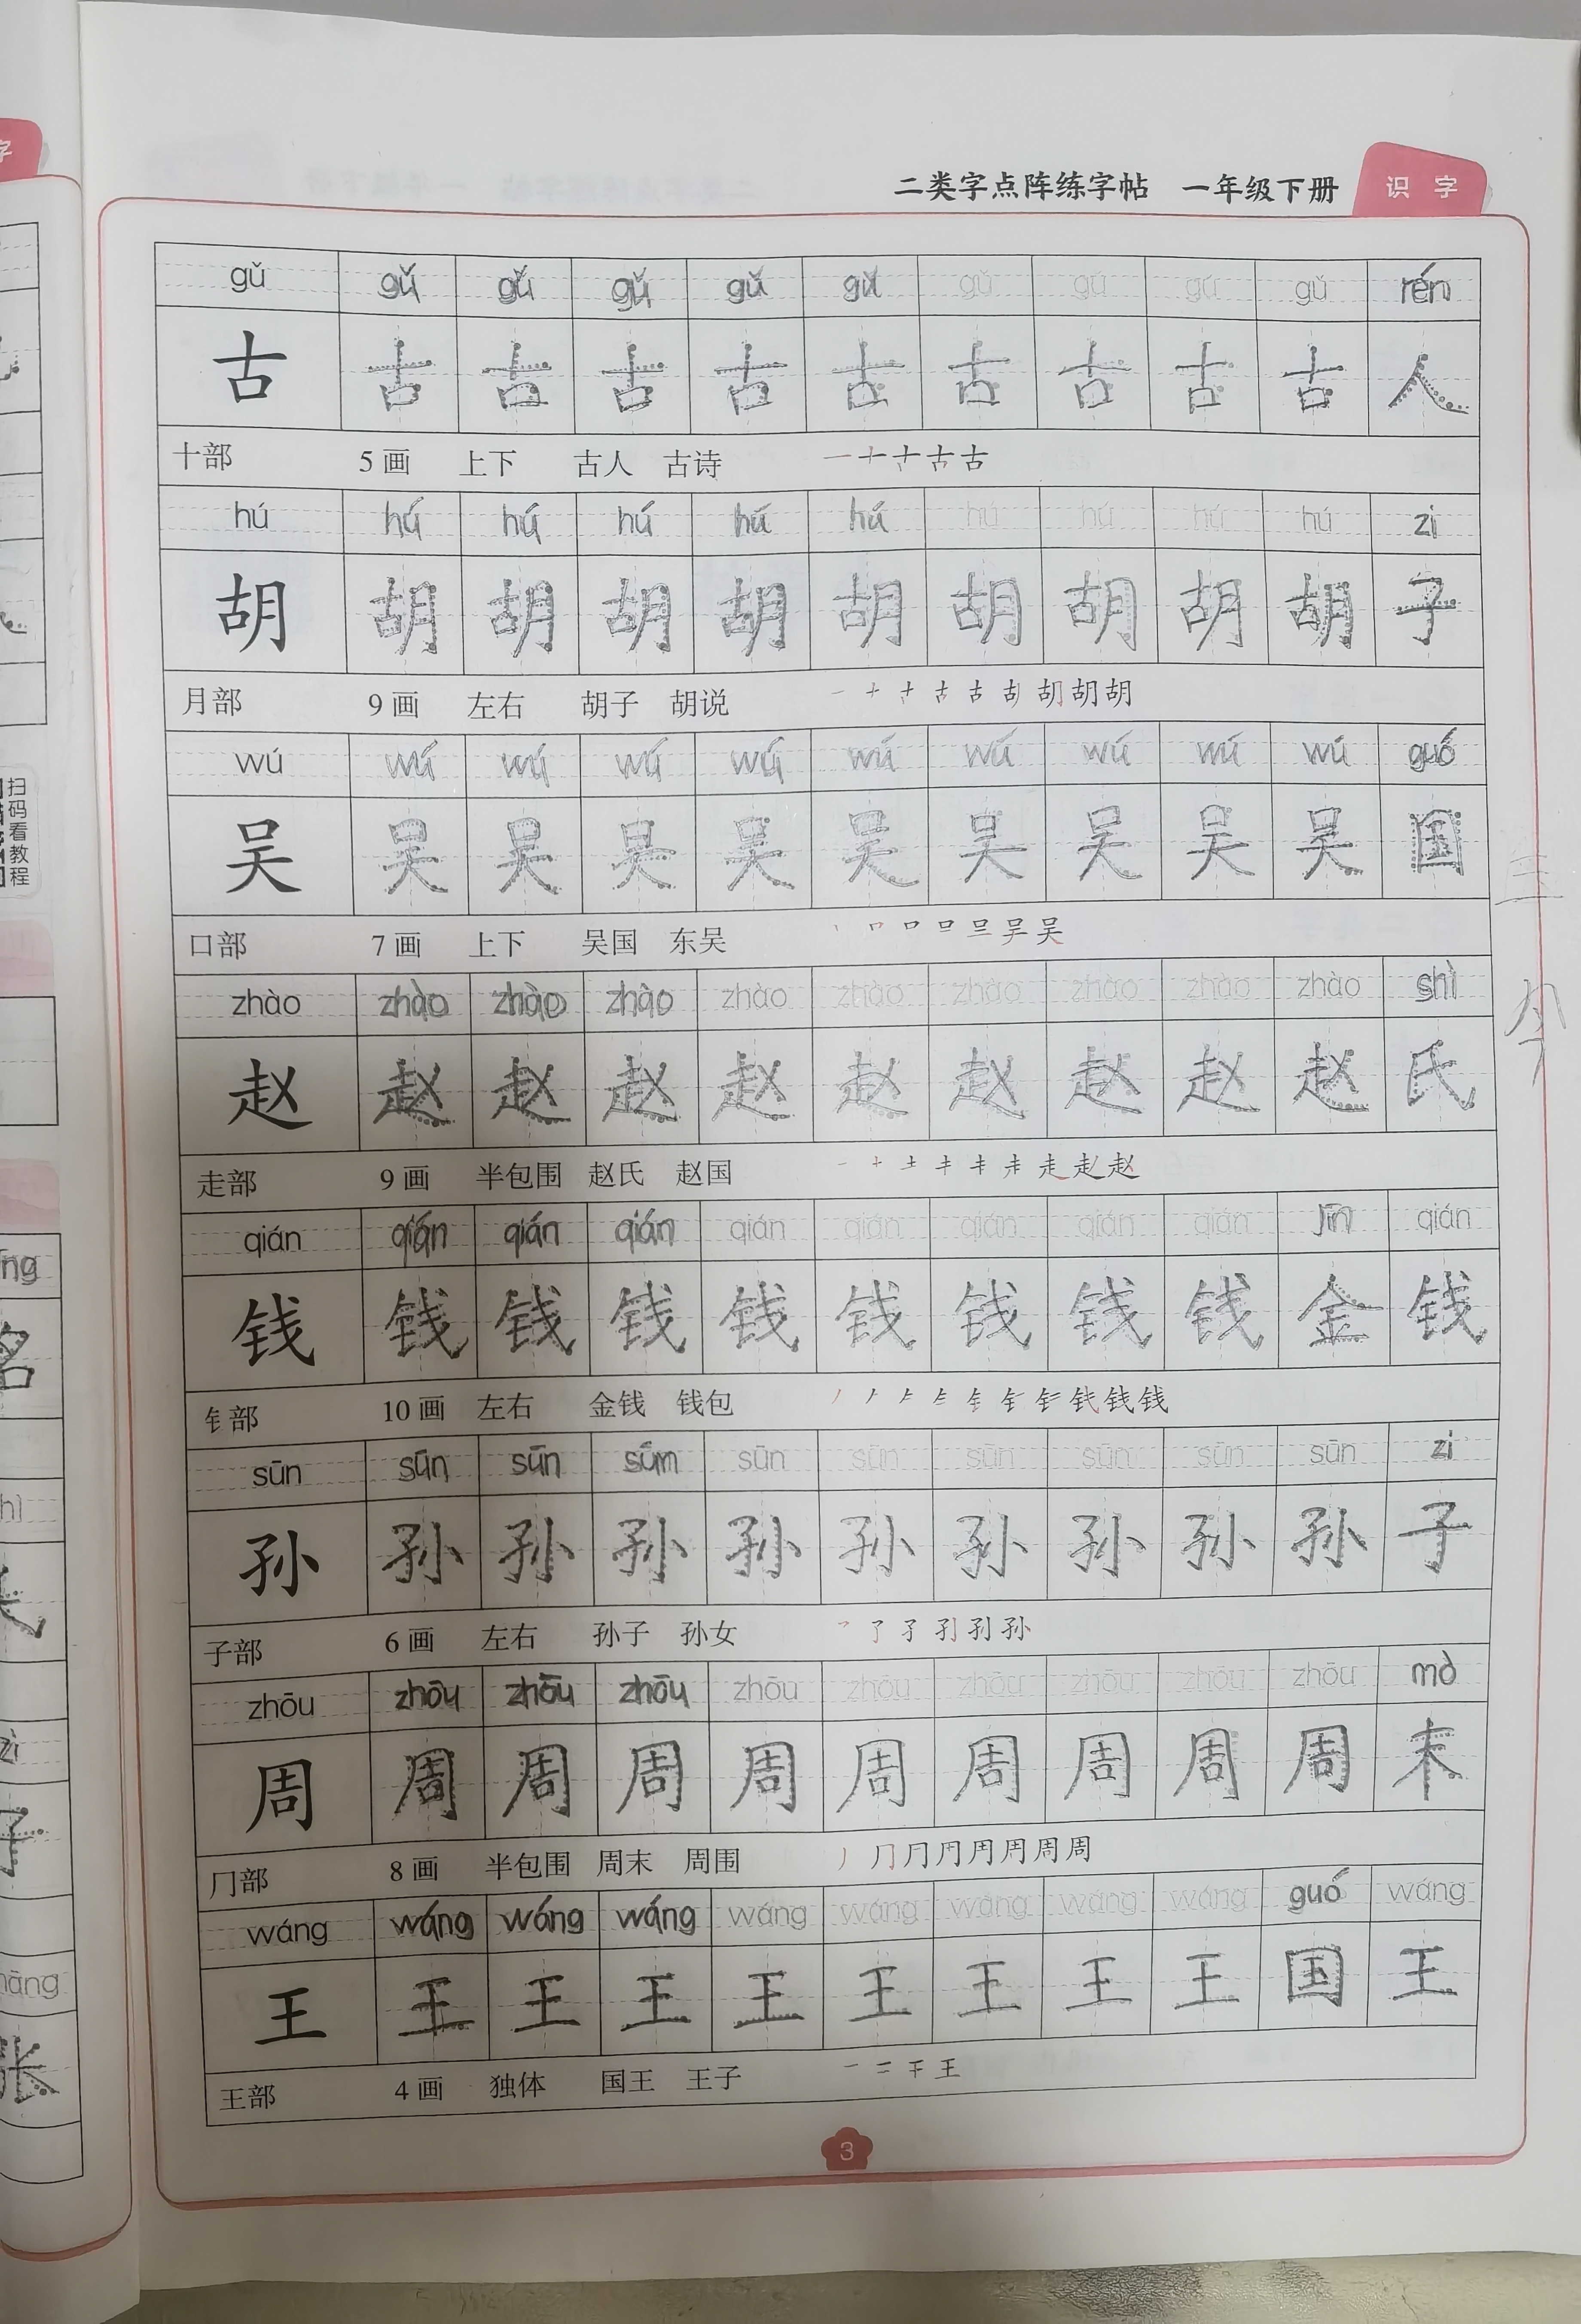 二类字点阵练字帖 一年级下册 识 字
gǔ gǔ gǔ gǔ gǔ gǔ gǔ gǔ gǔ gǔ rén
古 古 古 古 古 古 古 古 古 古 人
十部 5 画 上下 古人 古诗
hú hú hú hú hú hú hú hú hú hú zi
胡 胡 胡 胡 胡 胡 胡 胡 胡 胡 子
月部 9 画 左右 胡子 胡说
wú wú wú wú wú wú wú wú wú wú guó
吴 吴 吴 吴 吴 吴 吴 吴 吴 吴 国
口部 7 画 上下 吴国 东吴
zhào zhào zhào zhào zhào zhào zhào zhào zhào zhào shì
赵 赵 赵 赵 赵 赵 赵 赵 赵 赵 氏
走部 9 画 半包围 赵氏 赵国
qián qián qián qián qián qián qián qián qián jīn qián
钱 钱 钱 钱 钱 钱 钱 钱 钱 金 钱
钅部 10 画 左右 金钱 钱包
sūn sūn sūn sūn sūn sūn sūn sūn sūn sūn zi
孙 孙 孙 孙 孙 孙 孙 孙 孙 孙 子
子部 6 画 左右 孙子 孙女
zhōu zhōu zhōu zhōu zhōu zhōu zhōu zhōu zhōu zhōu mò
周 周 周 周 周 周 周 周 周 周 末
冂部 8 画 半包围 周末 周围
wáng wáng wáng wáng wáng wáng wáng wáng wáng guó wáng
王 王 王 王 王 王 王 王 王 国 王
王部 4 画 独体 国王 王子
3
字
扫码看教程